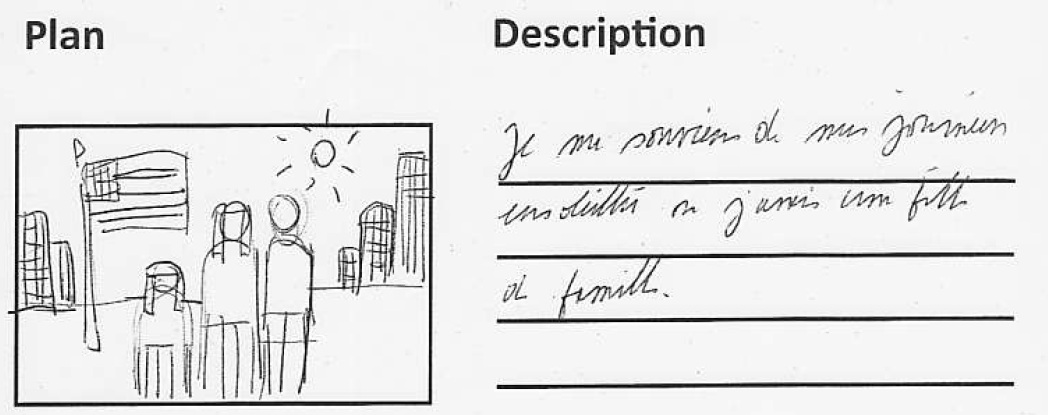 Plan
Description
Je me souviens de mes journées
ensoleillées où j'avais une fête
de famille.